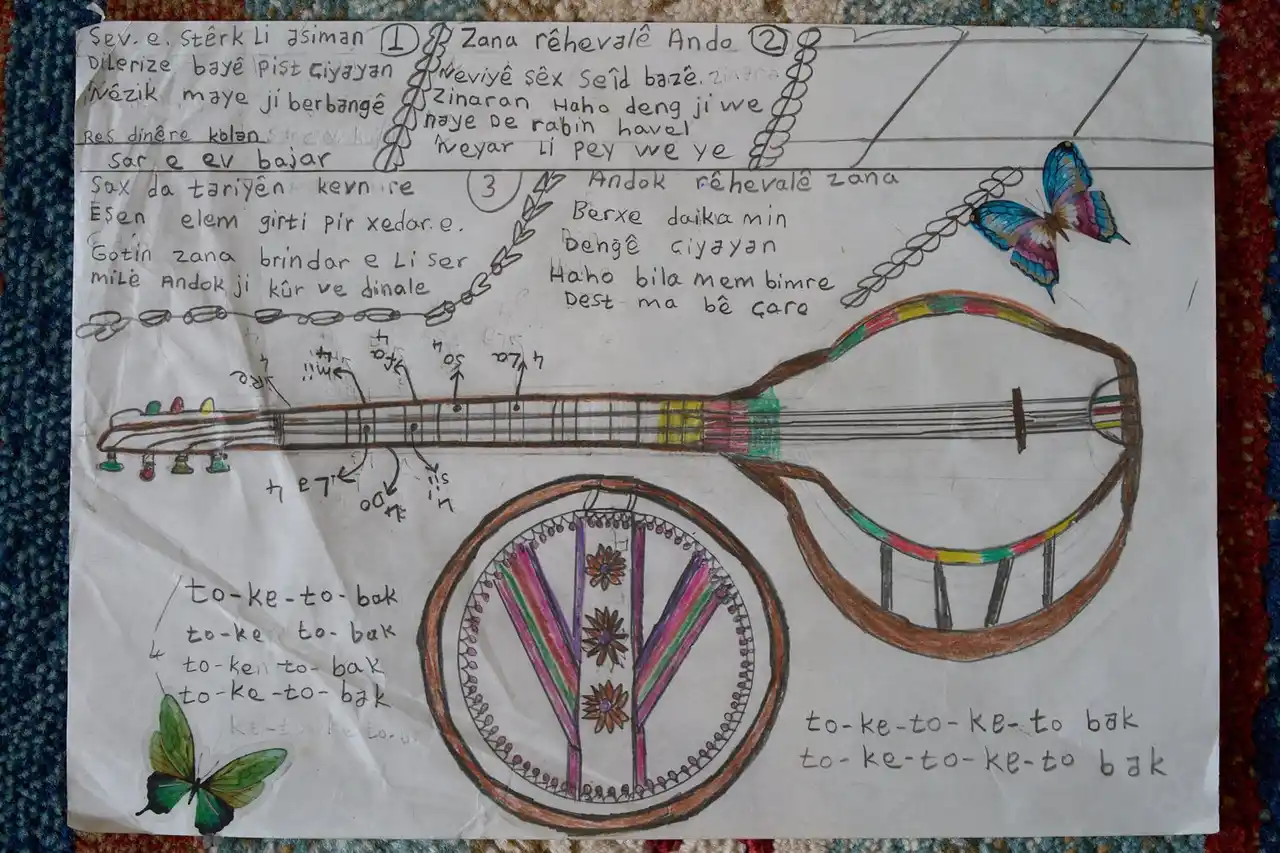 Şev. e. Stêrk Li asiman 1
Dilerize bayê pişt çiyayan
Nêzik maye ji berbangê
Reş dinêre kolan
Sar. e ev bajar
Zana rêhevalê Ando 2
Neviyê Şêx Seîd bazê.
Zinaran Haho deng ji we
naye De rabin haval
Neyar Li pey we ye
3
Sax da tariyên kevn re
Eşen elem girti pir xedar. e.
Gotin zana brindar e Li ser
milê Andok ji kûr ve dinale
Andok rêhevalê zana
Berxe daika min
Dengê çiyayan
Haho bila mem bimre
Dest ma bê çare
4 Re
4 Mii
4 Fa
4 So
4 La
La 4
Do 4
Sii 4
to-ke-to-bak
to-ke to-bak
4
to-ken to-bak
to-ke-to-bak
to-ke-to-ke-to bak
to-ke-to-ke-to bak